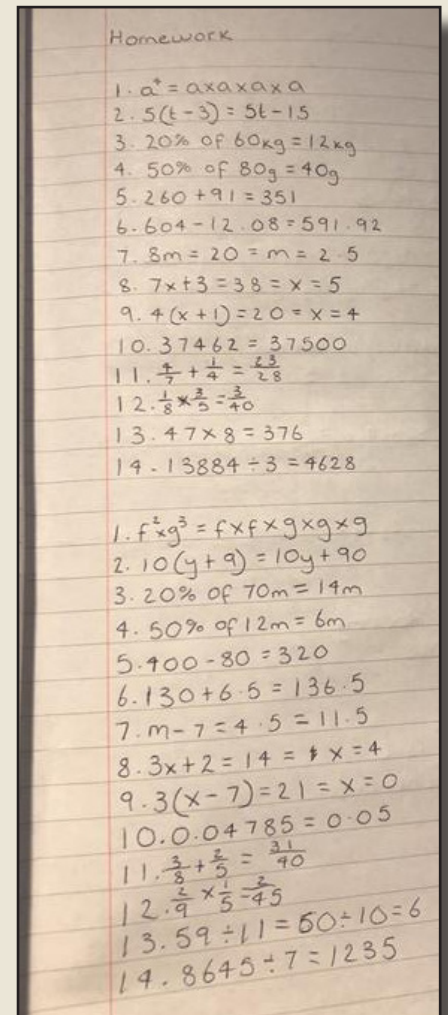 Homework
1. a⁴ = axaxaxa
2. 5(t-3) = 5t-15
3. 20% of 60kg = 12kg
4. 50% of 80g = 40g
5. 260 + 91 = 351
6. 604 - 12.08 = 591.92
7. 8m = 20 = m = 2.5
8. 7x+3 = 38 = x = 5
9. 4(x+1) = 20 = x = 4
10. 37462 = 37500
11. 4/7 + 1/4 = 23/28
12. 1/8 x 3/5 = 3/40
13. 47 x 8 = 376
14. 13884 ÷ 3 = 4628
1. f² x g³ = fxfxgxgxg
2. 10(y+9) = 10y + 90
3. 20% of 70m = 14m
4. 50% of 12m = 6m
5. 400 - 80 = 320
6. 130 + 6.5 = 136.5
7. m - 7 = 4.5 = 11.5
8. 3x + 2 = 14 = x = 4
9. 3(x-7) = 21 = x = 0
10. 0.04785 = 0.05
11. 3/8 + 2/5 = 31/40
12. 2/9 x 1/5 = 2/45
13. 59 ÷ 11 = 60 ÷ 10 = 6
14. 8645 ÷ 7 = 1235